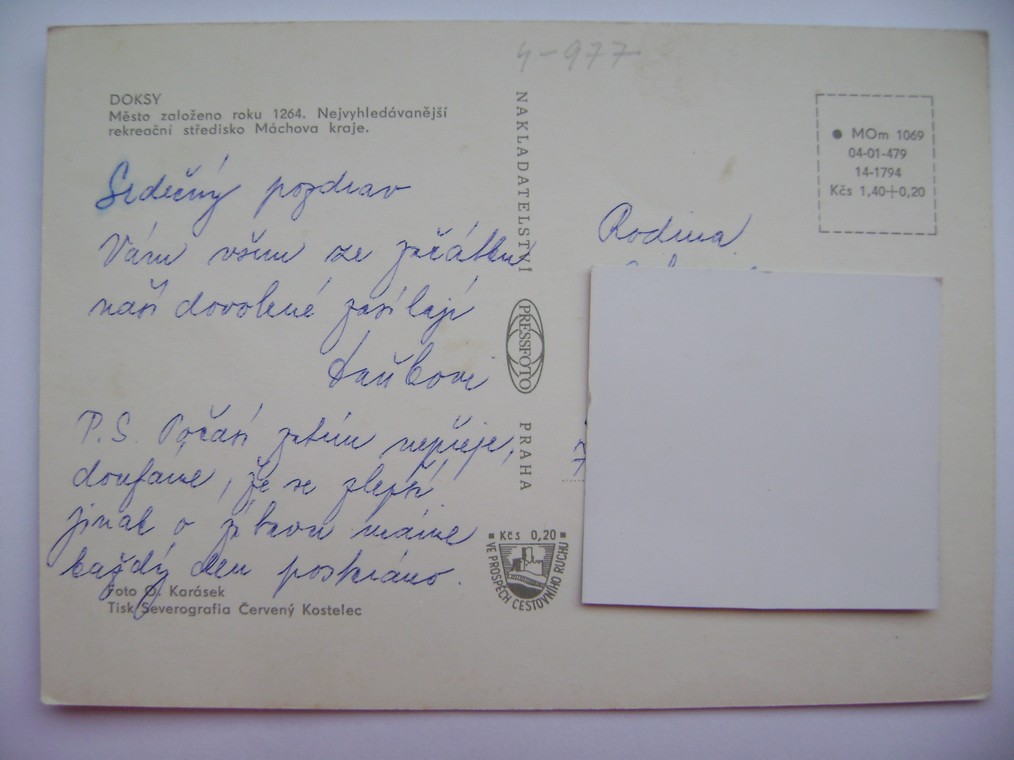 4-977
DOKSY
Město založeno roku 1264. Nejvyhledávanější
rekreační středisko Máchova kraje.
Srdečný pozdrav
Vám všem ze začátku
naší dovolené zasílají
P.S. Počasí zatím nepřeje,
doufáme, že se zlepší,
jinak o zábavu máme
každý den postaráno.
Foto O. Karásek
Tisk Severografia Červený Kostelec
NAKLADATELSTVÍ
PRESSFOTO
PRAHA
Kčs 0,20
VE PROSPĚCH CESTOVNÍHO RUCHU
MOm 1069
04-01-479
14-1794
Kčs 1,40+0,20
Rodina